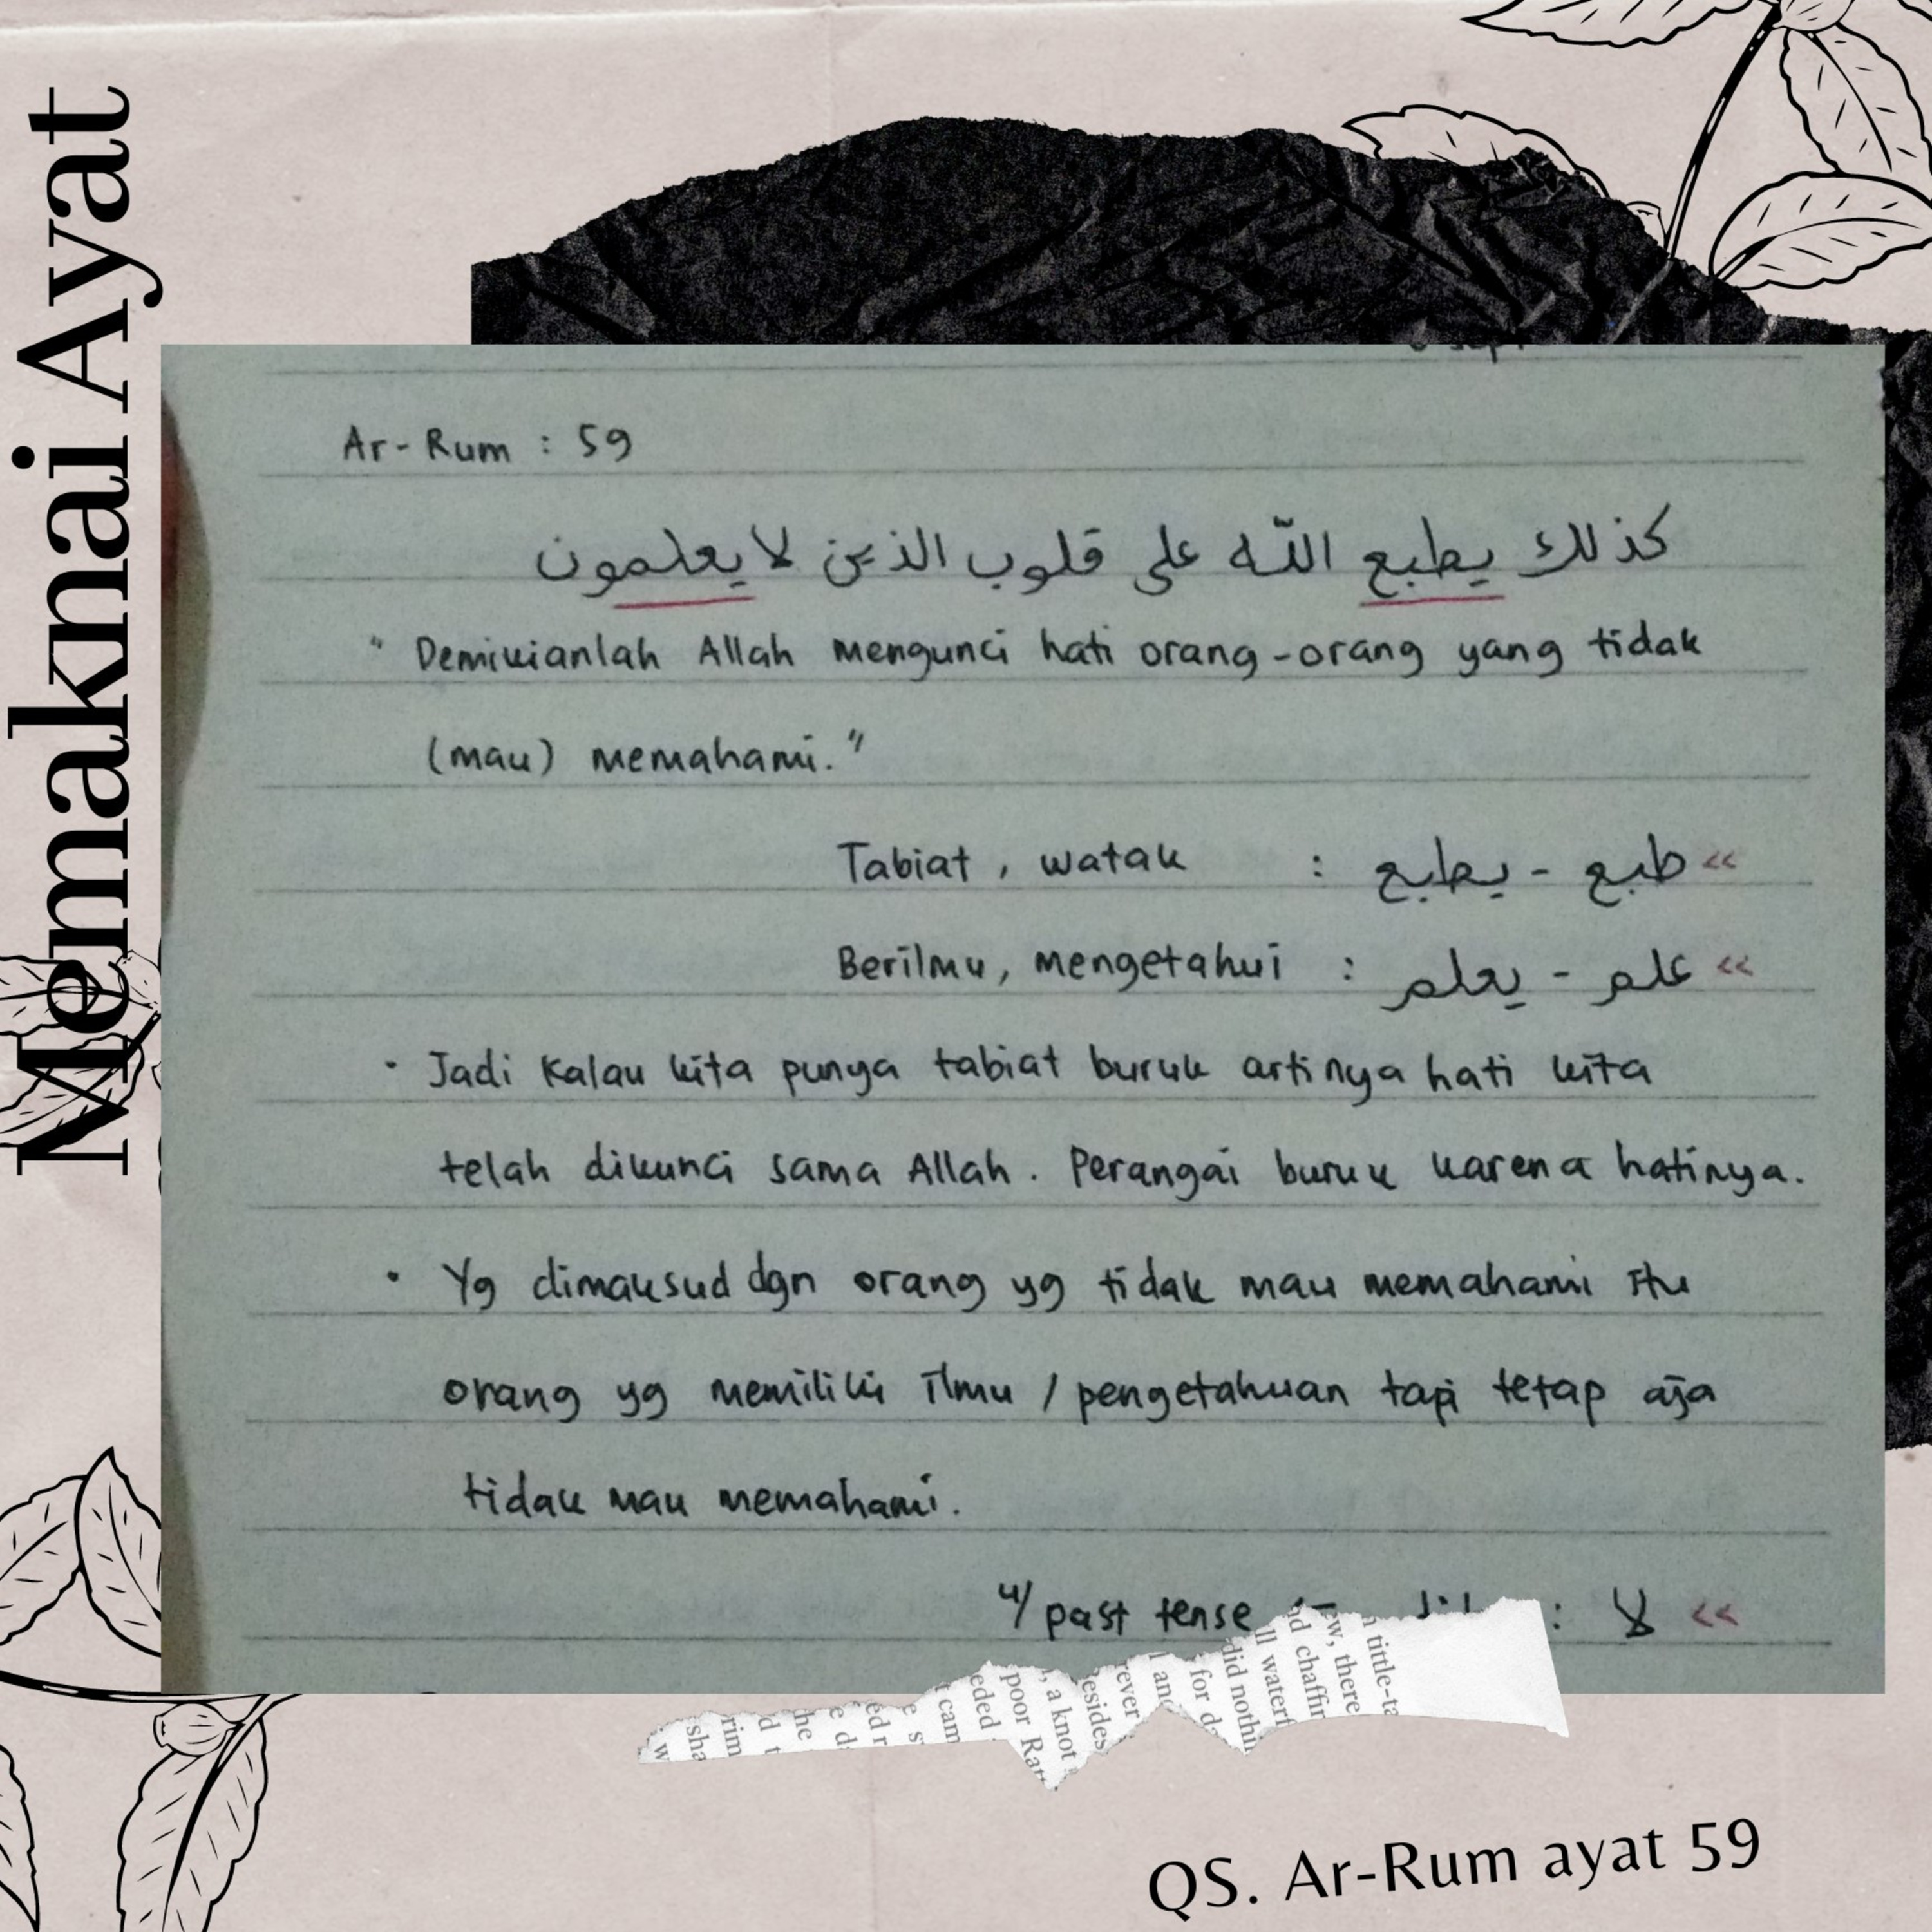 Memaknai Ayat
Ar-Rum : 59
كذلك يطبع الله على قلوب الذين لا يعلمون
" Demikianlah Allah mengunci hati orang-orang yang tidak
(mau) memahami."
Tabiat, watak : طبع - يطبع >>
Berilmu, mengetahui : علم - يعلم >>
· Jadi kalau kita punya tabiat buruk artinya hati kita
telah dikunci sama Allah. Perangai buruk karena hatinya.
· Yg dimaksud dgn orang yg tidak mau memahami itu
orang yg memiliki ilmu / pengetahuan tapi tetap aja
tidak mau memahami.
u/ past tense : لا >>
QS. Ar-Rum ayat 59